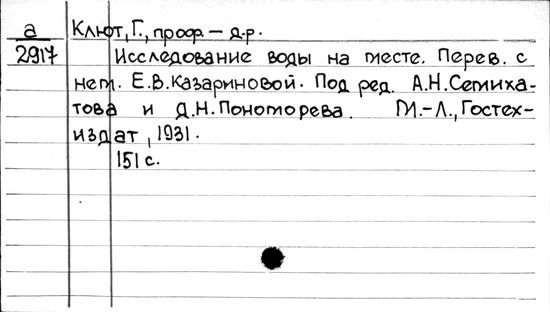 а
2917
Клют, Г., проф. - д-р.
Исследование воды на месте. Перев. с
нем. Е.В.Казариновой. Под ред. А.Н.Семиха-
това и Д.Н.Пономорева. М.-Л., Гостех-
издат, 1931.
151 с.